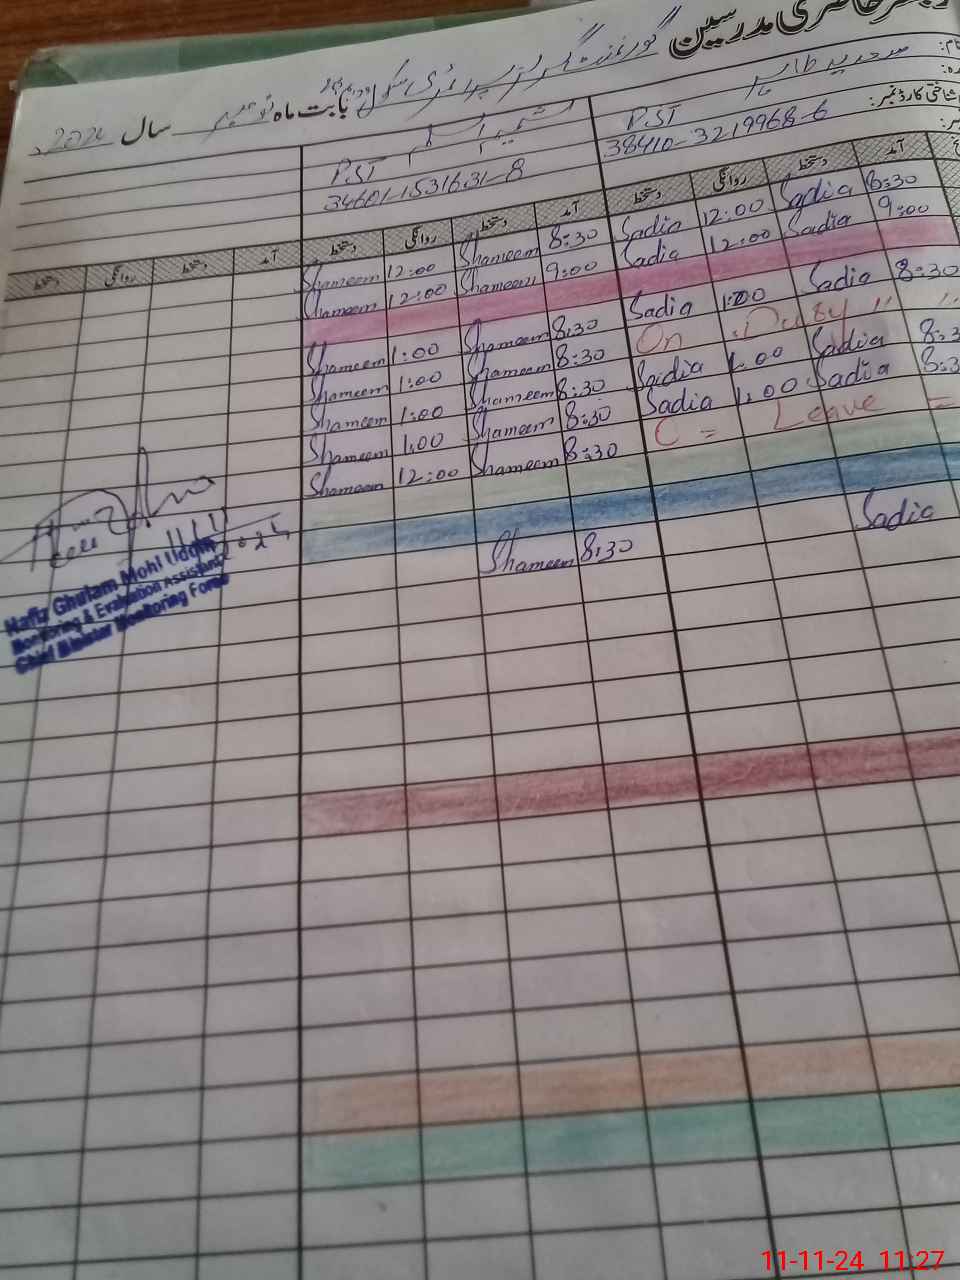 حاضری مدرسین
گورنمنٹ گرلز پرائمری سکول بابت ماہ نومبر سال 2024
نام: سعدیہ طاہر شمیم اسلم
عہدہ: PST PST
شناختی کارڈ نمبر: 38410-3219968-6 34601-1531631-8
آمد دستخط روانگی دستخط آمد دستخط روانگی دستخط آمد دستخط روانگی دستخط
8:30 Sadia 12:00 Sadia 8:30 Shameem 12:00 Shameem
9:00 Sadia 12:00 Sadia 9:00 Shameem 12:00 Shameem
8:30 Sadia 1:00 Sadia 8:30 Shameem 1:00 Shameem
On Duty " " 8:30 Shameem 1:00 Shameem
Sadia 1:00 Sadia 8:30 Shameem 1:00 Shameem
Sadia 1:00 Sadia 8:30 Shameem 1:00 Shameem
C = Leave = 8:30 Shameem 12:00 Shameem
Sadia 8:30 Shameem
Hafiz Ghulam Mohi Uddin
Monitoring & Evaluation Assistant
Chief Minister Monitoring Force
11-11-24 11:27